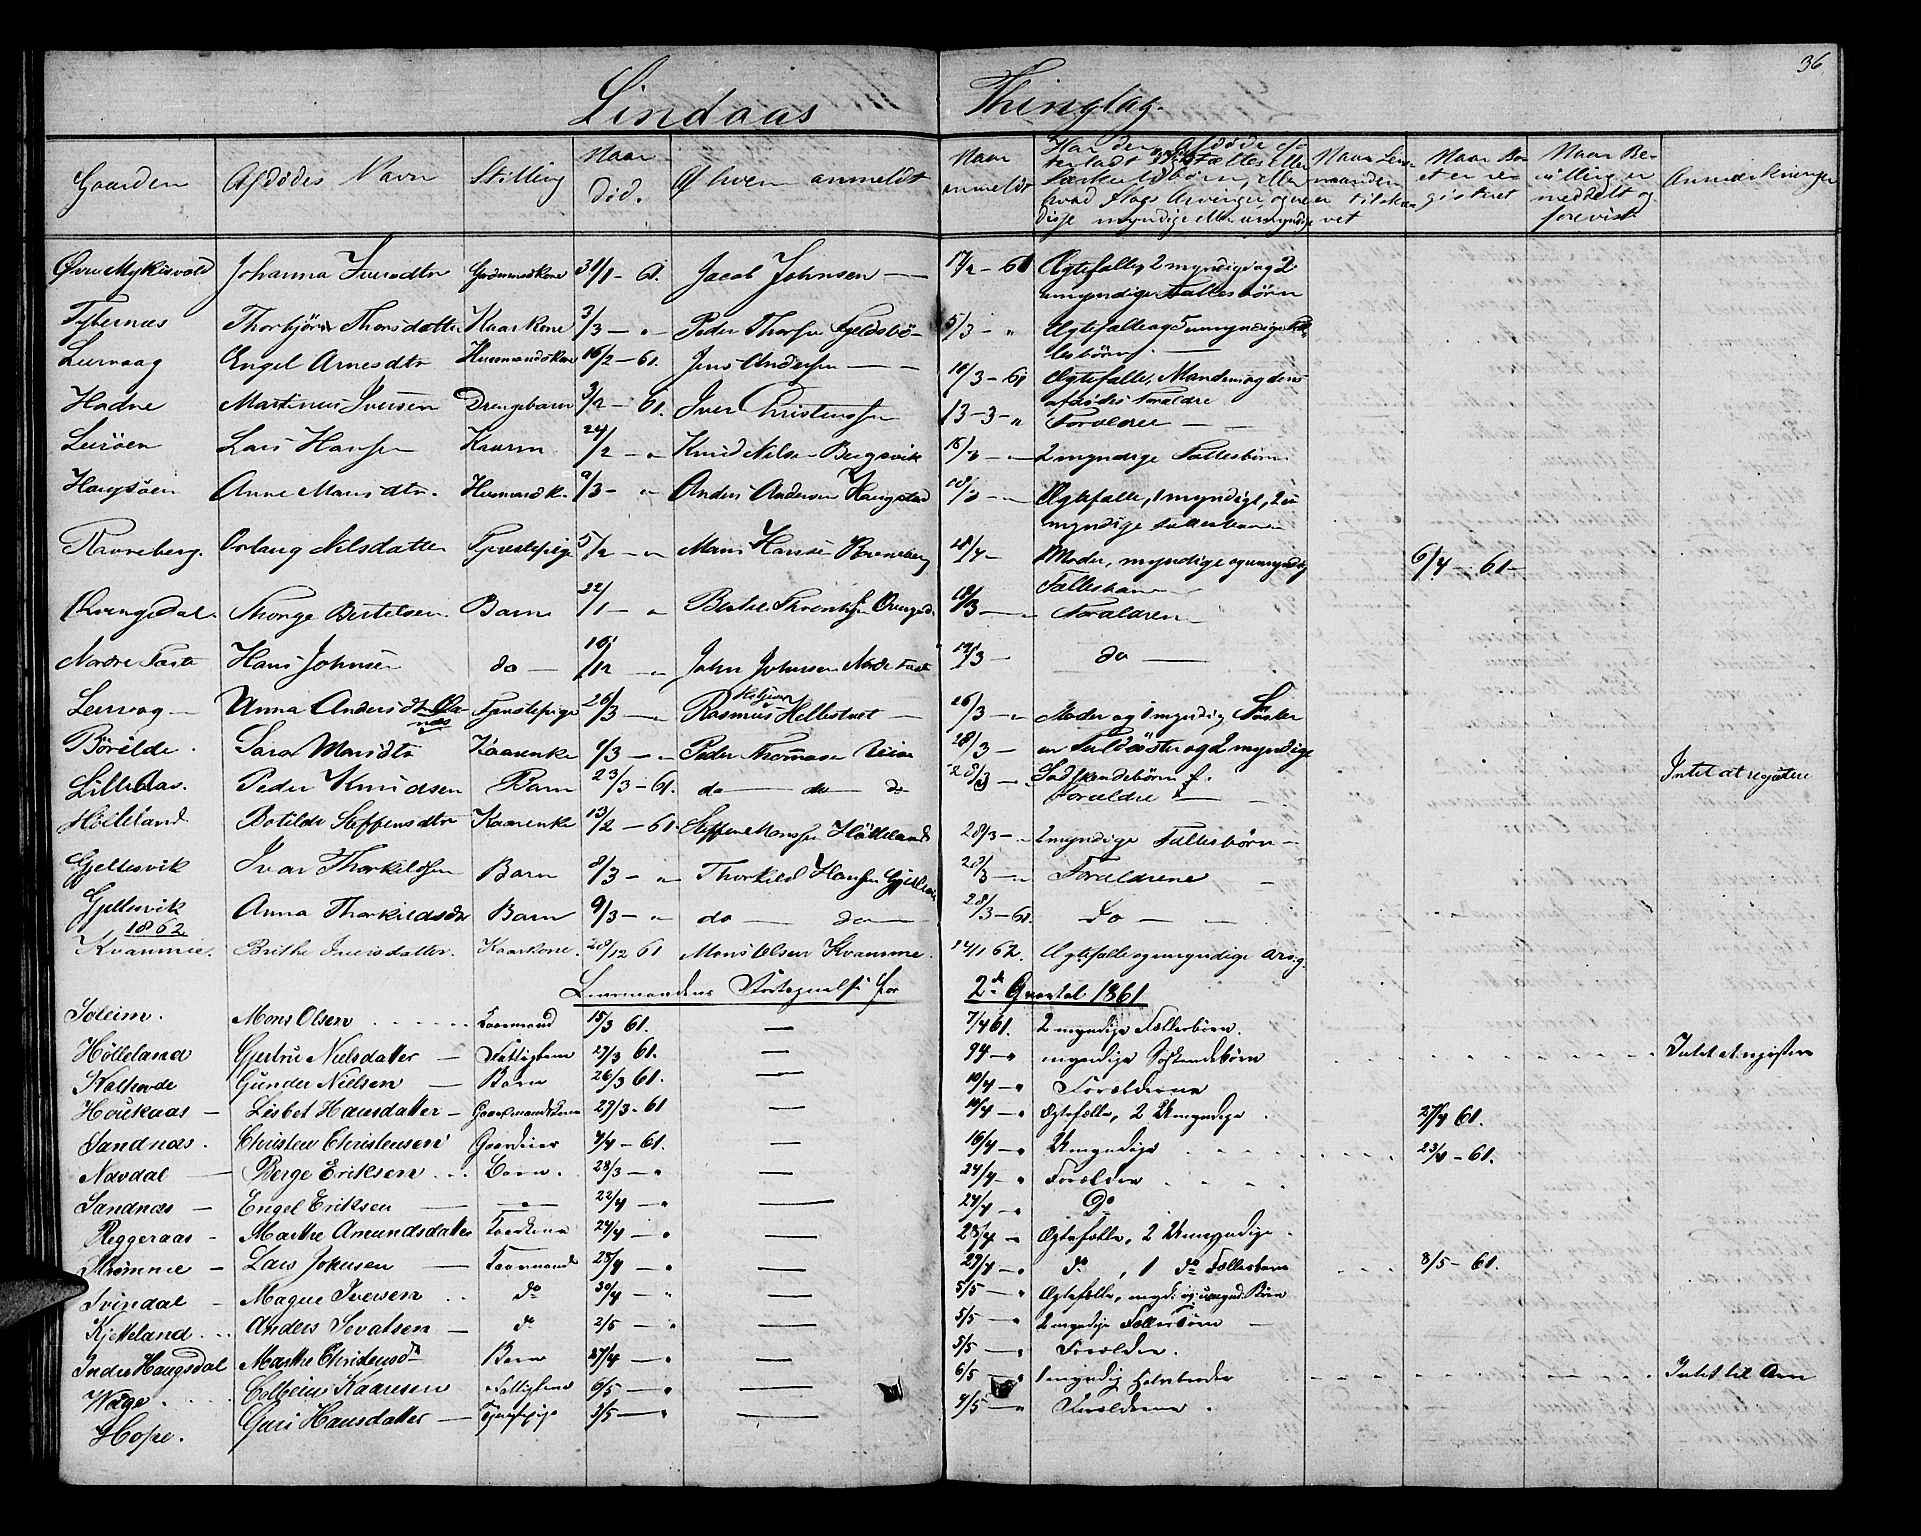 36
Lindaas Thinglag.
Gaarden Afdødes Navn Stilling Naar død. Af hvem anmeldt Naar anmeldt Har den Afdøde efterladt Ægtefælle eller Særkuldbørn, eller hvad Slags Arvinger, og ere disse myndige eller umyndige Naar Lensmanden er tilskrevet Naar Boet er registeret Naar Bevilling er meddelt og forevist Anmærkninger
Øvre Mykisvold Johanna Iversdtr Gaardmandskone 31/1 - 61. Jacob Johnsen — 17/2 - 61 Ægtefælle, 2 myndige og 2
umyndige Fællesbörn
Tybernæs Thorbjör Thorsdatter Kaarkone 3/3 - " Peder Thorsen Fjeldsbö 5/3 - " Ægtefælle og 5 umyndige Fæl-
lesbörn. —
Leirvaag Engel Arnesdtr Huusmandskone 16/2 - 61. Jens Andersen — 10/3 - 61 Ægtefælle, Manden og dens
afdödes Forældre
Hodne Martinus Iversen Drengebarn 3/2 - 61. Iver Christensen 13 - 3 - " Forældre —
Leiröen Lars Hansen Kaarm 24/2 - " Knud Nilsen Bergsvik 2 myndige Fællesbörn
Haugsöen Anne Monsdtr. Huusmandsk. 9/3 - " Anders Andersen Haugstad Ægtefælle, 1 myndige, 2 u-
myndige Fællesbørn
Ravneberg. Nilsdatter 5/2 - " Mons Hansen Moder, myndige og umyndig 6/4 - 61 -
Fællesbarn
Thorge Bertelsen Barn 22/1 - " 18/3 - " Forældrene
Nordre Faste Hans Johnsen do — /12 - " John Johnsen Nordre Faste /3 - do —
Leirvaag — Anna Andersdtr 26/3 - " Rasmus Hellestvet — 26/3 - " Moder og 1 myndig Söster
Sara Monsdtr Kaarenke 7/3 - " Peder Thomasen 28/3 - en Fuldsöster og 2 myndige
Peder Knudsen Barn 23/3 - 61. do — do do 28/3 - Forældre — Intet at registere
Höilland Botilde Steffensdtr Kaarenke 13/2 - 61. Steffen Monsen Hölleland 28/3 - " 2 myndige Fællesbörn —
Gjellesvik Ivar Thorkildsen Barn 8/3 - " Thorkild Hansen 28/3 - " Forældrene
Gjellesvik Anna Thorkildsdtr Barn 9/3 - " do — do — 28/3 - 61. Do —
1862
Kvamme. Brithe Iversdatter. Kaarkone. 28/12 61 Mons Olsen Kvamme. 14/1 62. Ægtefælle og umyndige Arvg.
Lensmandens Fortegnelse for 2de Qvartal 1861
Soleim. Mons Olsen Kaarmand 15/3 61. — 7/4 61. 2 myndige Fællesbörn.
Hölleland Gjertrue Nielsdatter — Fattiglem 27/3 61. — 9/4 - " myndige Söskendebörn Intet at registere
Gunder Nielsen — Barn 26/3 61. — 10/4 - " Forælderne
Houkaas — Lisbet Hansdatter — Gaardmandskone 29/3 - 61 — 10/4 - " Ægtefælle, 2 Umyndige 27/4 61.
Sandnæs. Christen Christensen Gaardeier 4/4 - 61. — 16/4 - " Umyndige 23/4 - 61.
Navdal — Berge Eriksen Barn. 28/3 - " — 24/4 - " Forældre
Sandnæs — Engel Eriksen — — " — 22/4 - " — 24/4 - " Do
Reggeraas — Marthe Amundsdatter Kaarkone 24/4 - " — 28/4 - " Ægtefælle, 2 Umyndige.
Lars Johnsen — Kaarmand 28/4 - " — 29/4 - " do, 1 do Fællesbarn 8/5 - 61.
Svindal — Magne Iversen do 30/4 - " — 5/5 - " Ægtefælle, mynd. og umynd. Börn
Kjetteland Anders Sevatsen — do 2/5 - " — 5/5 - " 2 myndige Fællesbörn —
Indre Haugsdal Marthe Christensd Barn 27/4 - " — 5/5 - " Forældre.
Waage Colbein Kaarsen Fattiglem 6/5 - " — 6/5 - " 1 myndig Halvbroder Intet til Arv
Hope. Guri Hansdatter — Tjenestepige 3/5 - " — 7/5 - " Forælderne